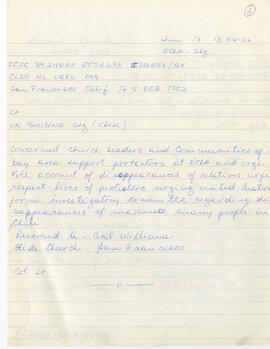 6
June 17 13 54-77
ECLA - Stg
San Francisco Calif 16 5 1502
LT
UN BUILDING Stg (Chile)
Concerned Church leaders and Communities of
bay area support protestors at ECLA and urge
Full account of disappearances of relatives urge
respect lives of protestors urging united Nations
form investigatory committe regarding
sappearances of many people in
Chile
Reverend Williams
Glide Church San Francisco
Col Lt